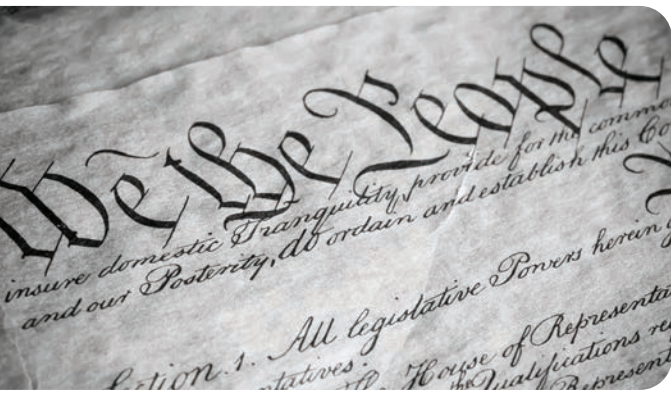 We the People
insure domestic Tranquility, provide for the comm
and our Posterity, do ordain and establish this Co
ection. 1. All legislative Powers herein g
ntatives.
The House of Representa
Qualifications re
Represent